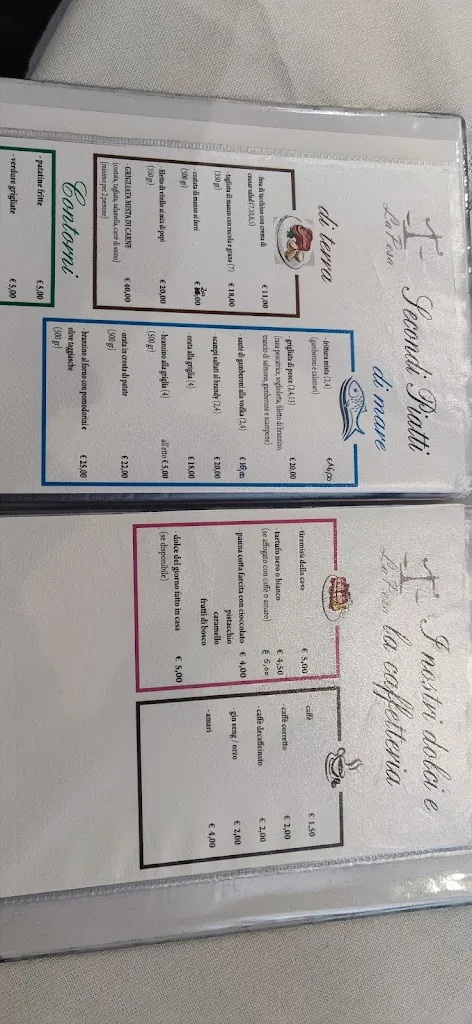 La Pesa
Secondi Piatti
di terra
- fesa di tacchino con crema di
caesar salad (7,10,6,3)
€ 11,00
- tagliata di manzo con rucola e grana (7)
(350 gr)
€ 18,00
- costata di manzo ai ferri
(500 gr)
€ 20,00
- filetto di vitello ai mix di pepi
(350 gr)
€ 20,00
- GRIGLIATA MISTA DI CARNE
(costata, tagliata, salamella, carrè di suino)
(minimo per 2 persone)
€ 40,00
Contorni
- patatine fritte € 5,00
- verdure grigliate € 5,00
di mare
- frittura mista (2,4)
(gamberoni e calamari)
€ 16,00
- grigliata di pesce (2,4,13)
(rana pescatrice, sogliola, filetto di branzino,
trancio di salmone, gamberone e scampone)
€ 20,00
- sauté di gamberoni alla vodka (2,4)
€ 16,00
- scampi saltati al brandy (2,4)
€ 20,00
- orata alla griglia (4)
€ 18,00
- branzino alla griglia (4)
(500 gr)
all'etto € 5,00
- orata in crosta di patate
(500 gr)
€ 22,00
- branzino al forno con pomodorini e
olive taggiasche
(500 gr)
€ 25,00
La Pesa
I nostri dolci e
la caffetteria
- tiramisù della casa € 5,00
- tartufo nero o bianco € 4,50
(se affogato con caffè o amaro) € 5,00
- panna cotta farcita con cioccolato € 4,00
pistacchio
caramello
frutti di bosco
- dolce del giorno fatto in casa € 5,00
(se disponibile)
- caffè € 1,50
- caffè corretto € 2,00
- caffè decaffeinato € 2,00
- gin seng / orzo € 2,00
- amari € 4,00